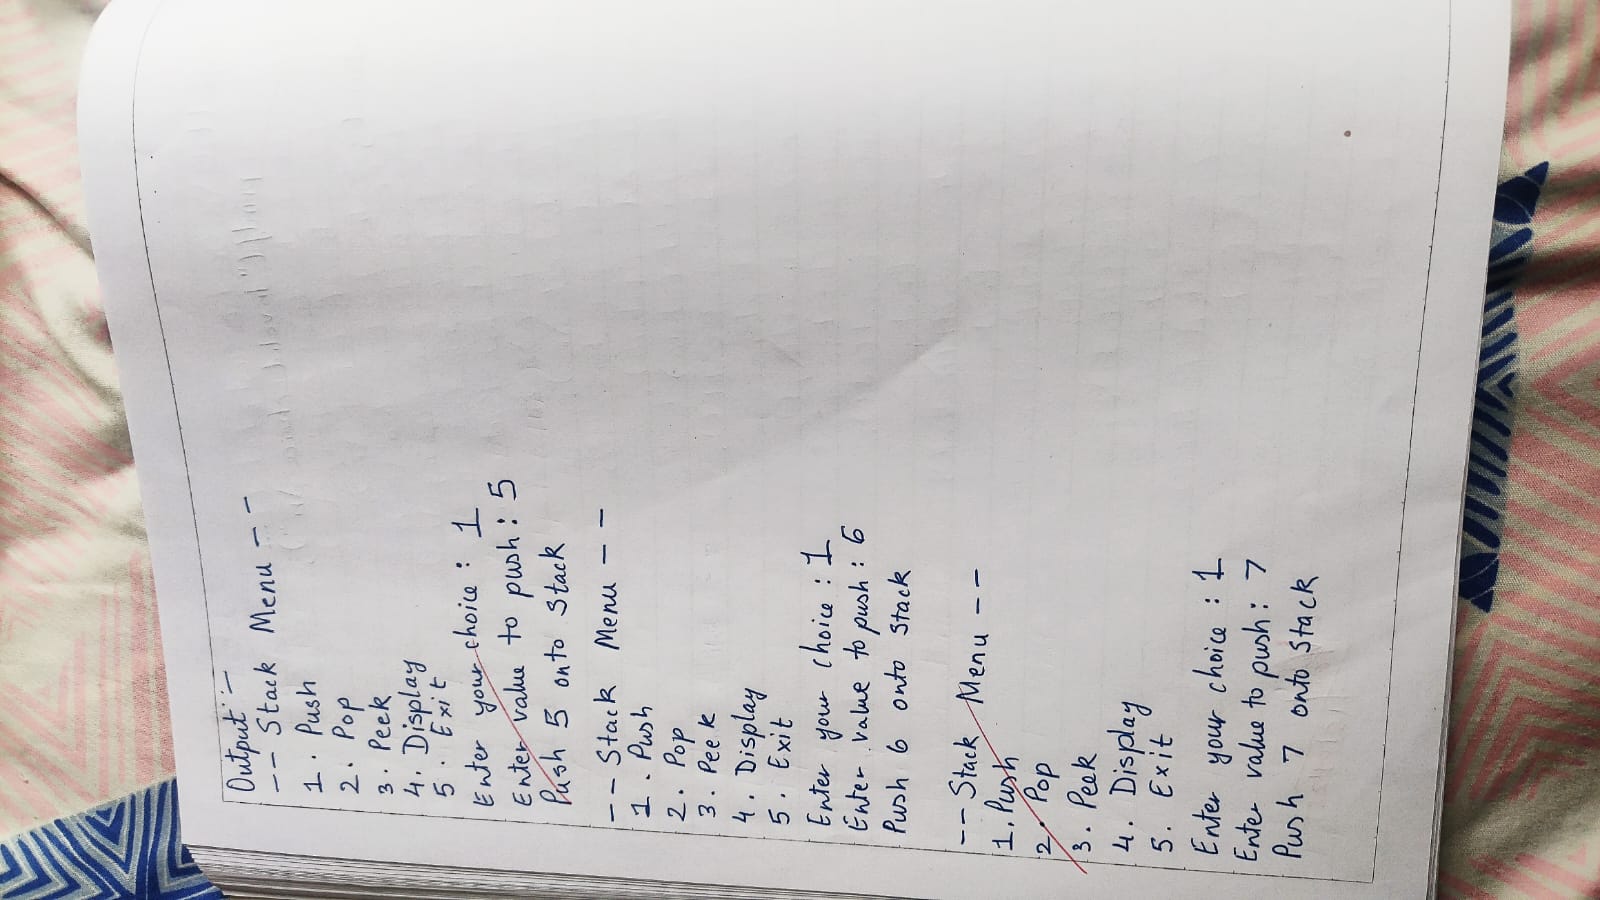 Output :-
-- Stack Menu --
1. Push
2. Pop
3. Peek
4. Display
5. Exit
Enter your choice : 1
Enter value to push : 5
Push 5 onto Stack
-- Stack Menu --
1. Push
2. Pop
3. Peek
4. Display
5. Exit
Enter your choice : 1
Enter value to push : 6
Push 6 onto Stack
-- Stack Menu --
1. Push
2. Pop
3. Peek
4. Display
5. Exit
Enter your choice : 1
Enter value to push : 7
Push 7 onto Stack